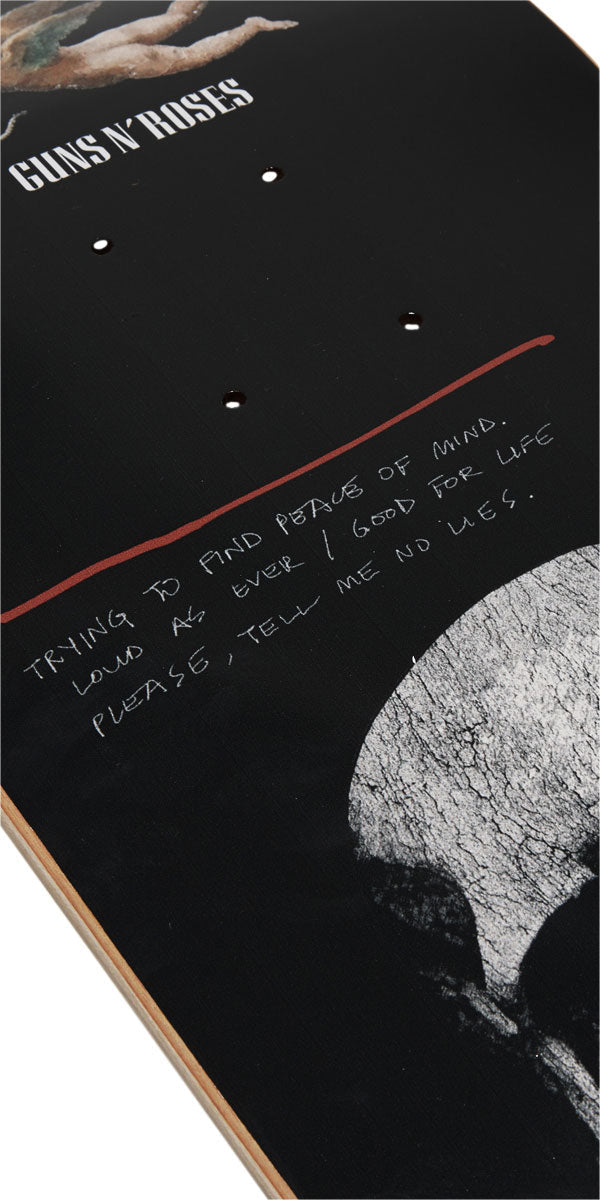 GUNS N' ROSES
TRYING TO FIND PEACE OF MIND.
LOUD AS EVER / GOOD FOR LIFE
PLEASE, TELL ME NO LIES.